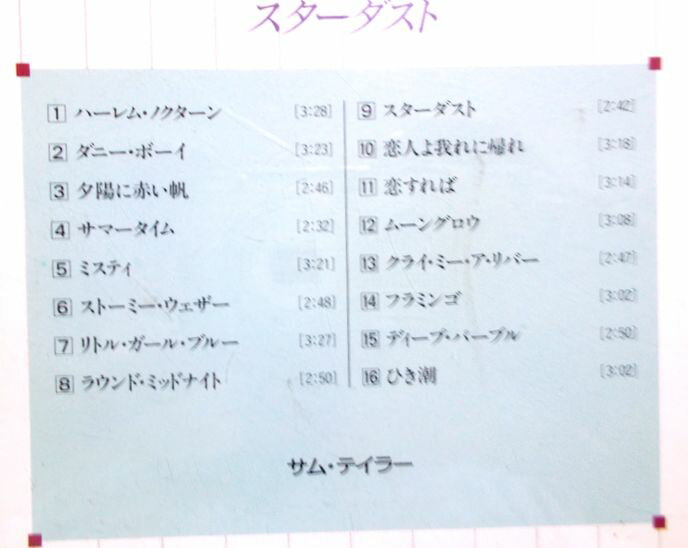 スターダスト
1 ハーレム・ノクターン [3:28]
2 ダニー・ボーイ [3:23]
3 夕陽に赤い帆 [2:46]
4 サマータイム [2:32]
5 ミスティ [3:21]
6 ストーミー・ウェザー [2:48]
7 リトル・ガール・ブルー [3:27]
8 ラウンド・ミッドナイト [2:50]
9 スターダスト [2:42]
10 恋人よ我れに帰れ [3:18]
11 恋すれば [3:14]
12 ムーングロウ [3:08]
13 クライ・ミー・ア・リバー [2:47]
14 フラミンゴ [3:02]
15 ディープ・パープル [2:50]
16 ひき潮 [3:02]
サム・テイラー